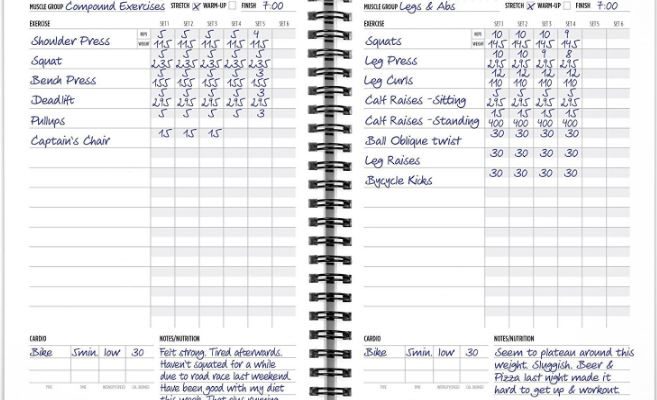 MUSCLE GROUP Compound Exercises STRETCH X WARM-UP FINISH 7:00
EXERCISE SET 1 SET 2 SET 3 SET 4 SET 5 SET 6
Shoulder Press REPS 5 5 5 4
WEIGHT 115 115 115 115
Squat 5 5 5 5
235 235 235 235
Bench Press 5 5 5 3
155 155 155 155
Deadlift 5 5 5 3
295 295 295 295
Pullups 5 5 5 3
Captain's Chair 15 15 15
CARDIO
Bike 5min. low 30
TYPE TIME CAL. BURNED
NOTES/NUTRITION
Felt strong. Tired afterwards.
Haven't squated for a while
due to road race last weekend.
Have been good with my diet
this week. That our running
MUSCLE GROUP Legs & Abs STRETCH X WARM-UP FINISH 7:00
EXERCISE SET 1 SET 2 SET 3 SET 4 SET 5 SET 6
Squats REPS 10 10 10 9
WEIGHT 145 145 145 145
Leg Press 10 10 9 8
295 295 295 295
Leg Curls 12 12 12 12
110 110 110 110
Calf Raises -Sitting 5 5 5 5
295 295 295 295
Calf Raises -Standing 15 15 15 15
400 400 400 400
Ball Oblique twist 30 30 30 30
Leg Raises 30 30 30 30
Bycycle Kicks 30 30 30 30
CARDIO
Bike 5min. low 30
TYPE TIME CAL. BURNED
NOTES/NUTRITION
Seem to plateau around this
weight. Sluggish. Beer &
Pizza last night made it
hard to get up & workout.